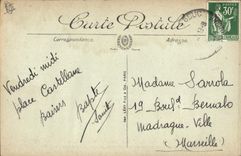 Carte Postale
Correspondance
Adresse
30c
Vendredi midi
place Castellane
Baisers
Madame Sarrola
19 Bris^d Bernabo
Madrague-Ville
(Marseille)